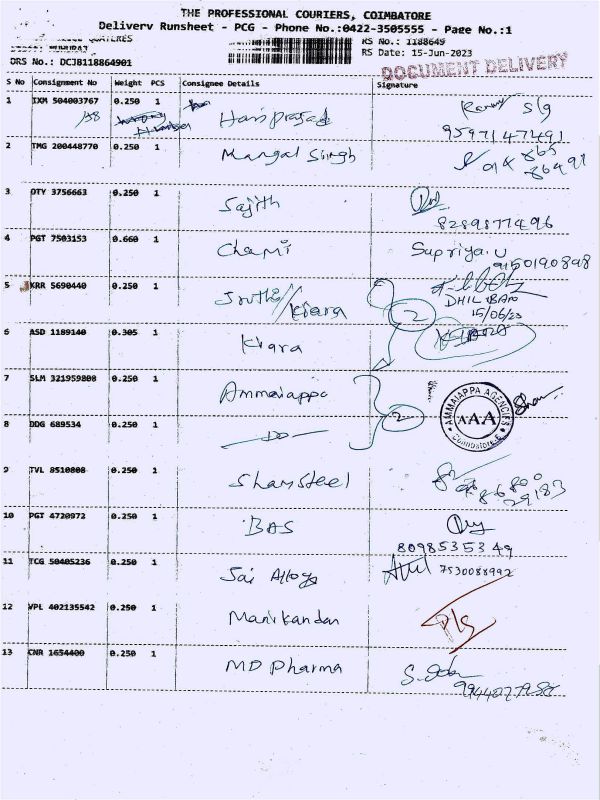 THE PROFESSIONAL COURIERS, COIMBATORE
Delivery Runsheet - PCG - Phone No.:0422-3505555 - Page No.:1
RS No.: 1188649
RS Date: 15-Jun-2023
DRS No.: DCJB118864901
DOCUMENT DELIVERY
S No Consignment No Weight PCS Consignee Details Signature
1 IXM 504003767 0.250 1 Hariprasad
9597147491
2 TMG 200448770 0.250 1 Mangal Singh
3 OTY 3756663 0.250 1 Sajith
8289877496
4 PGT 7503153 0.660 1 Chami Supriya.U
9150190898
5 KRR 5690440 0.250 1 Sruthi/Kiara
DHILIBAN
15/06/23
2
6 ASD 1189140 0.305 1 Kiara
7 SLM 321959808 0.250 1 Ammaiappa
AMMAIAPPA AGENCIES
AAA
Coimbatore
8 DDG 689534 0.250 1 DO 2
9 TVL 8510808 0.250 1 Sham Steel
10 PGT 4720972 0.250 1 BAS
8098535349
11 TCG 50405236 0.250 1 Sai Alloys 7530088992
12 VPL 402135542 0.250 1 Manikandan
13 CNR 1654400 0.250 1 MD Pharma